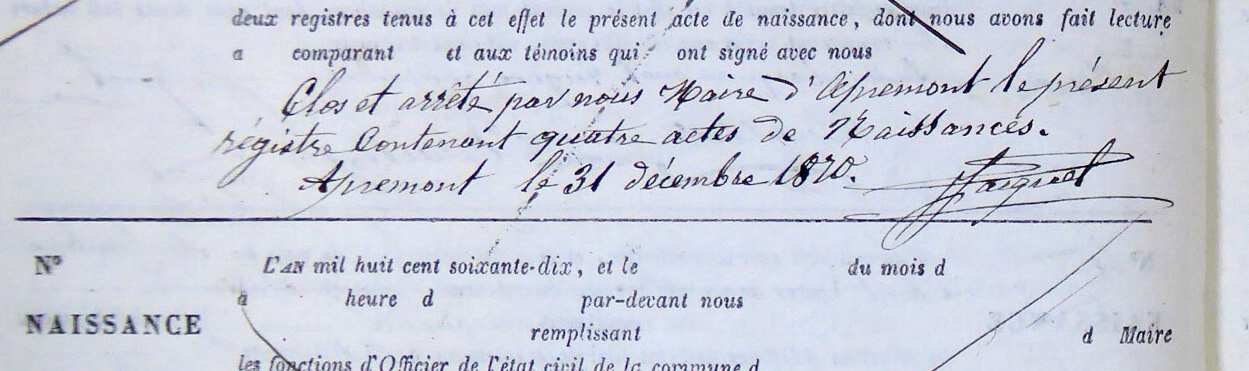 deux registres tenus à cet effet le présent acte de naissance, dont nous avons fait lecture
a comparant et aux témoins qui ont signé avec nous
Clos et arrêté par nous Maire d'Apremont le présent
régistre Contenant quatre actes de Naissances.
Apremont le 31 décembre 1870.
N° L'AN mil huit cent soixante-dix, et le du mois d
à heure d par-devant nous
NAISSANCE remplissant d Maire
les fonctions d'Officier de l'état civil de la commune d